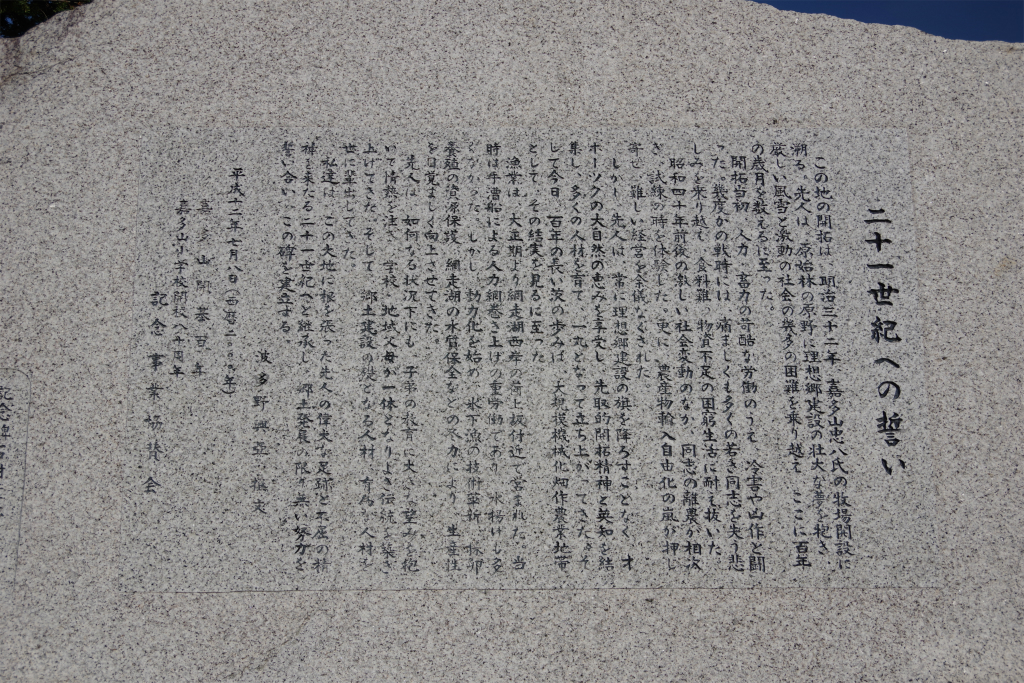 二十一世紀への誓い
この地の開拓は、明治三十二年、嘉多山忠八氏の牧場開設に
溯る。先人は、原始林の原野に理想郷建設の壮大な夢を抱き、
厳しい風雪と激動の社会の幾多の困難を乗り越えて、ここに百年
の歳月を数えるに至った。
開拓当初、人力、畜力の苛酷な労働のうえ、冷害や凶作と闘
った。幾度かの戦時には、痛ましくも多くの若き同志を失う悲
しみを乗り越え、食料難、物資不足の困窮生活に耐え抜いた。
昭和四十年前後の激しい社会変動のなか、同志の離農が相次
ぎ、試練の時を体験した。更に、農産物輸入自由化の嵐が押し
寄せ、難しい経営を余儀なくされた。
しかし、先人は、常に理想郷建設の旗を降ろすことなく、オ
ホーツクの大自然の恵みを享受し、先取的開拓精神と英知を結
集し、多くの人材を育て、一丸となって立ち上がってきた。そ
して今日、百年の長い茨の歩みは、大規模機械化畑作農業地帯
として、その結実を見るに至った。
漁業は、大正期より網走湖西岸の荷上場付近で営まれた。当
時は手漕船による人力網巻き上げの重労働であり、水揚げも多
くなかった。しかし、動力化を始め、氷下漁の技術革新、採卵
養殖の資源保護、網走湖の水質保全などの努力により、生産性
を目覚ましく向上させてきた。
先人は、如何なる状況下にも、子弟の教育に大きな望みを抱
いて情熱を注ぎ、学校、地域父母が一体となりよき伝統を築き
上げてきた。そして、郷土建設の礎となる人材、有為な人材を
世に輩出してきた。
私達は、この大地に根を張った先人の偉大な足跡と不屈の精
神を来たる二十一世紀へと継承し、郷土発展の限り無い努力を
誓い合い、この碑を建立する。
平成十二年七月八日(西暦二〇〇〇年)
波多野興亞 撰文
嘉多山開基百年
嘉多山小学校開校八十周年
記念事業協賛会